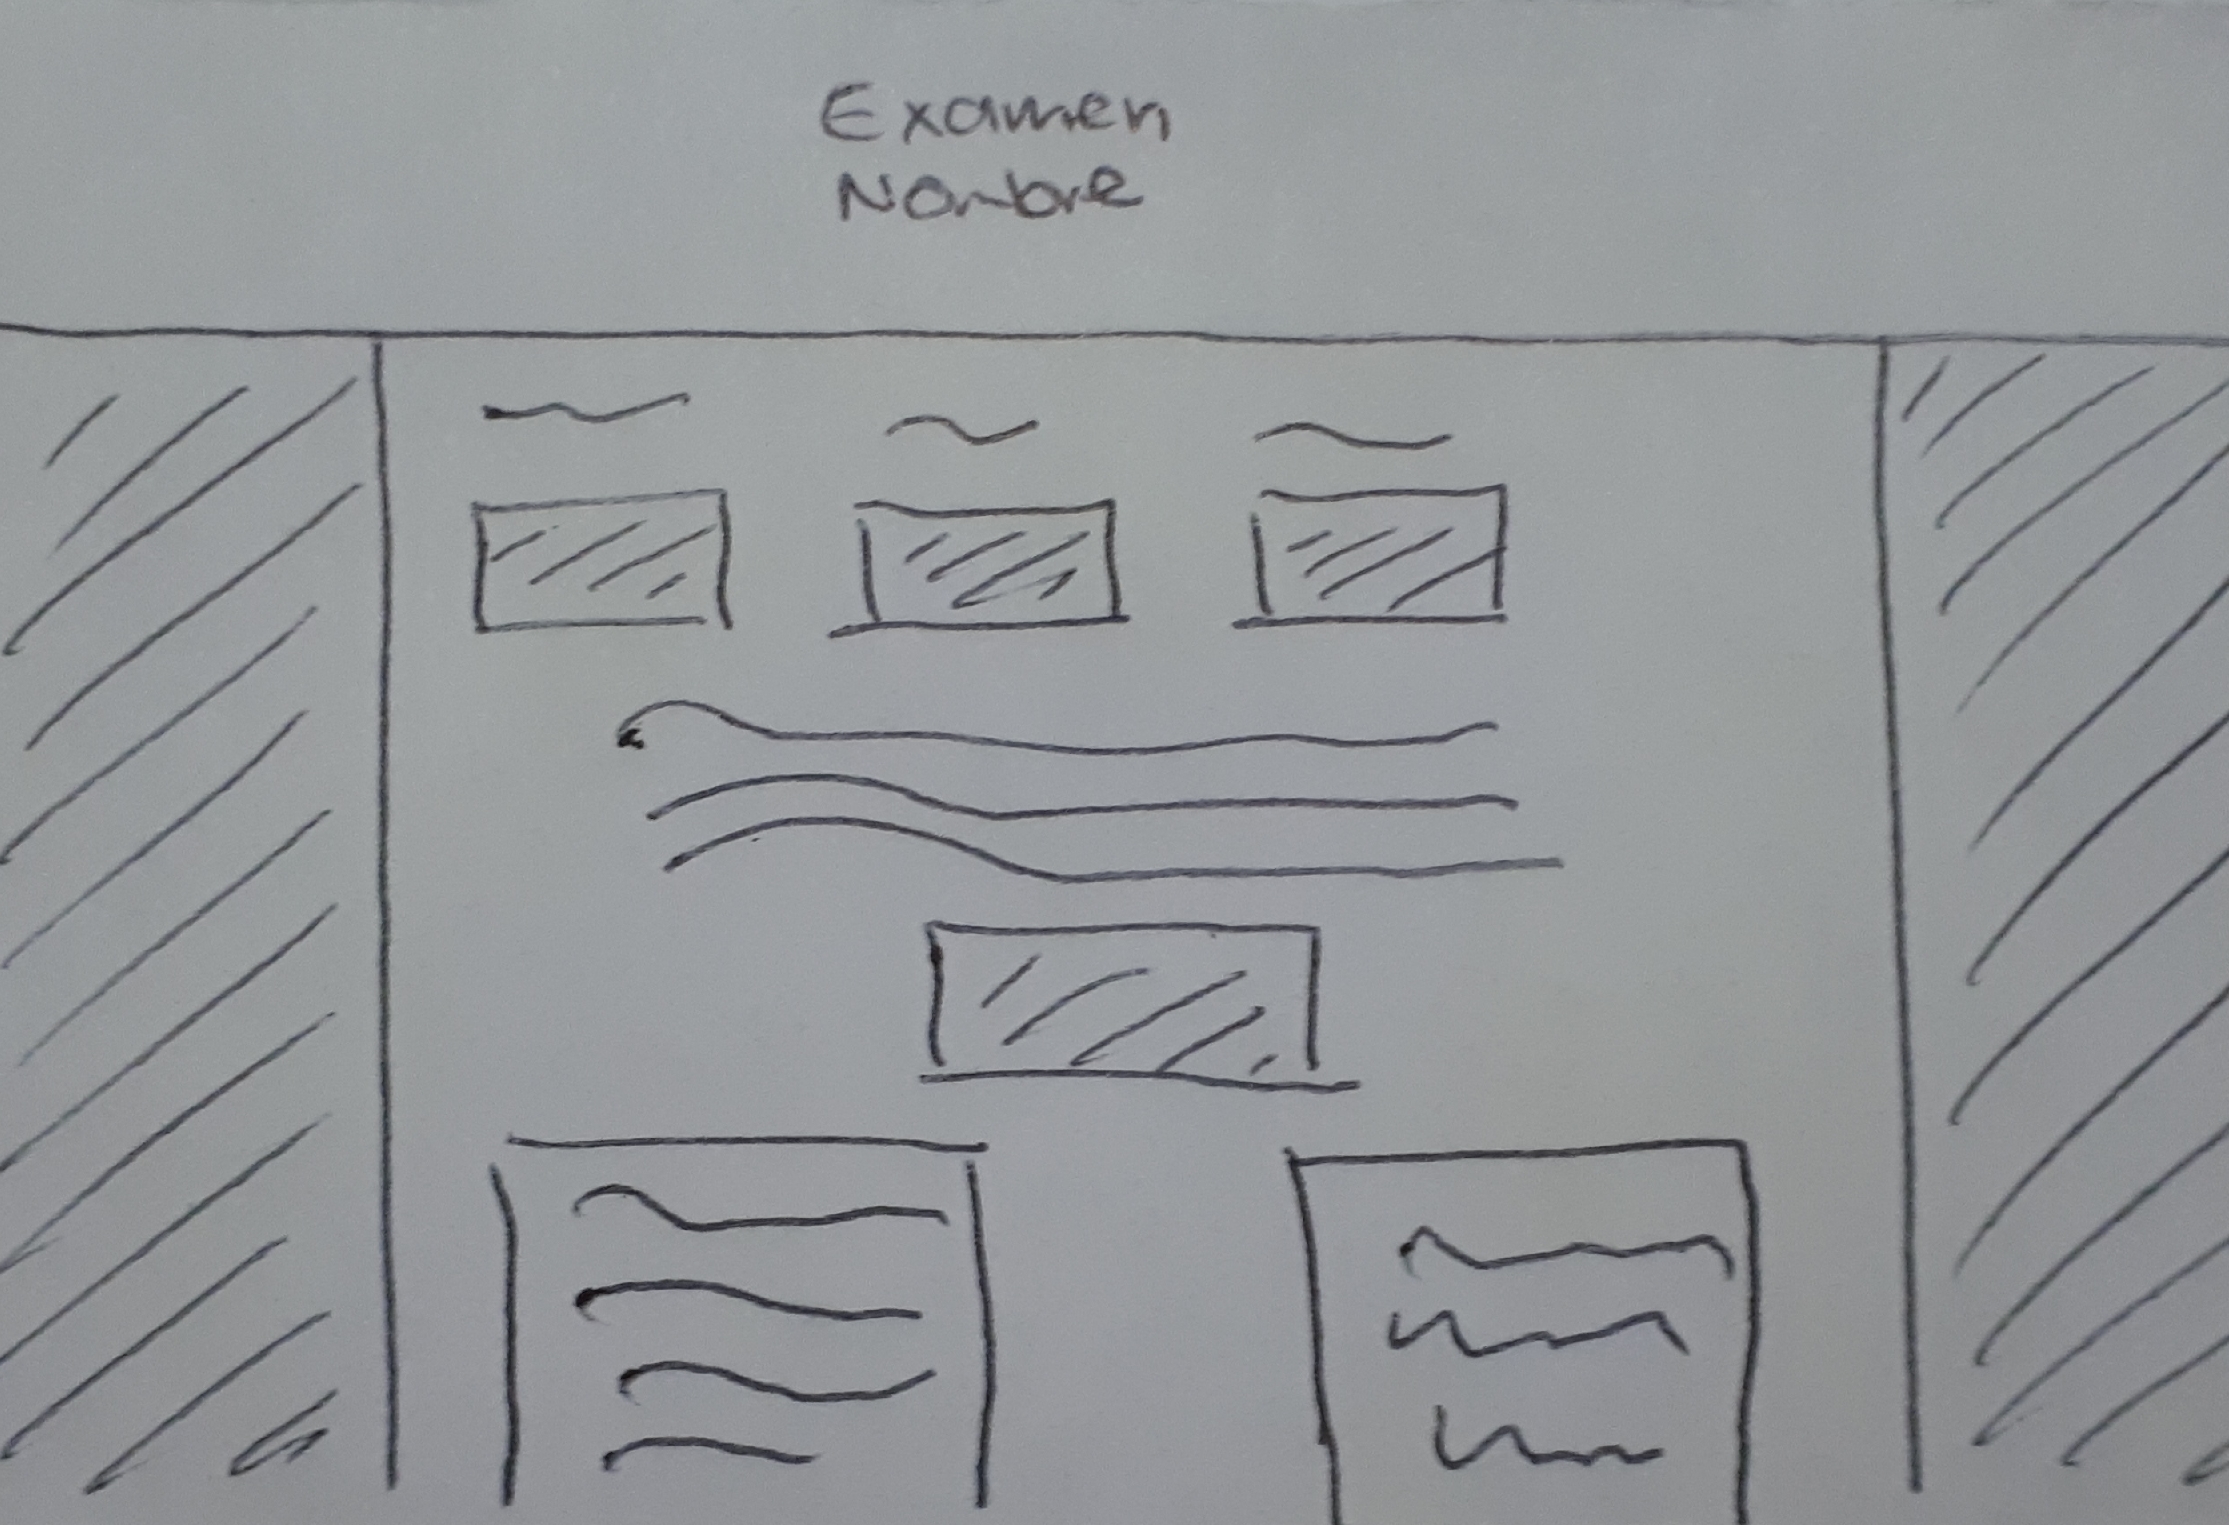 Examen
Nombre